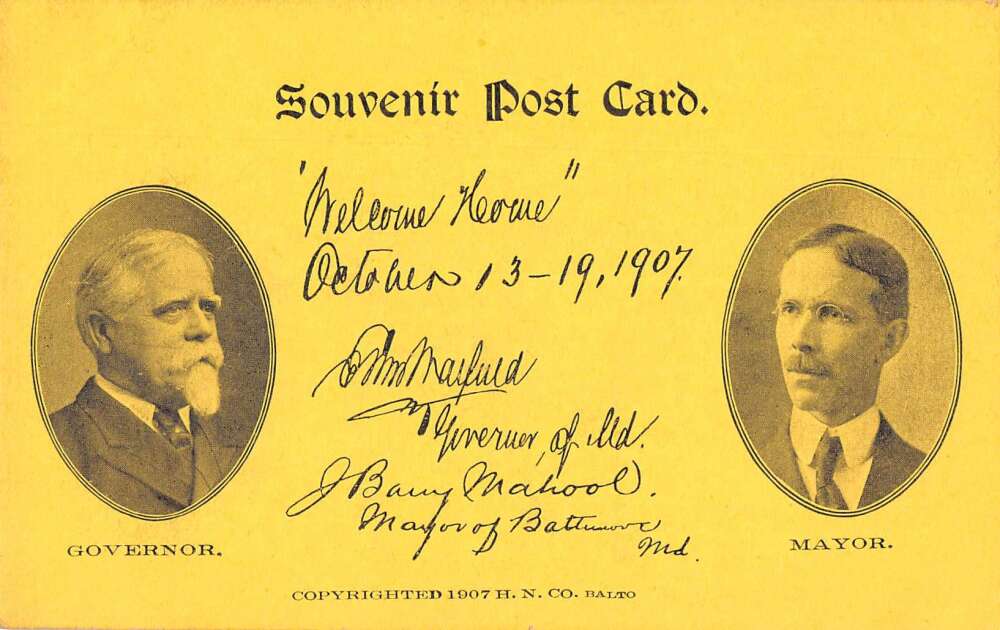 Souvenir Post Card.
"Welcome Home"
October 13-19, 1907.
Governor, of Md.
J Barry Mahool.
Mayor of Baltimore
Md.
GOVERNOR.
MAYOR.
COPYRIGHTED 1907 H. N. CO. BALTO